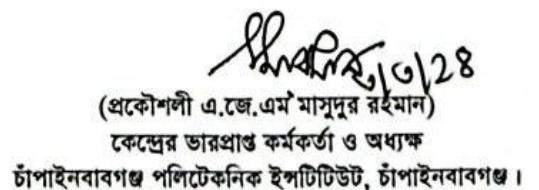 (প্রকৌশলী এ.জে.এম মাসুদুর রহমান)
কেন্দ্রের ভারপ্রাপ্ত কর্মকর্তা ও অধ্যক্ষ
চাঁপাইনবাবগঞ্জ পলিটেকনিক ইন্সটিটিউট, চাঁপাইনবাবগঞ্জ।